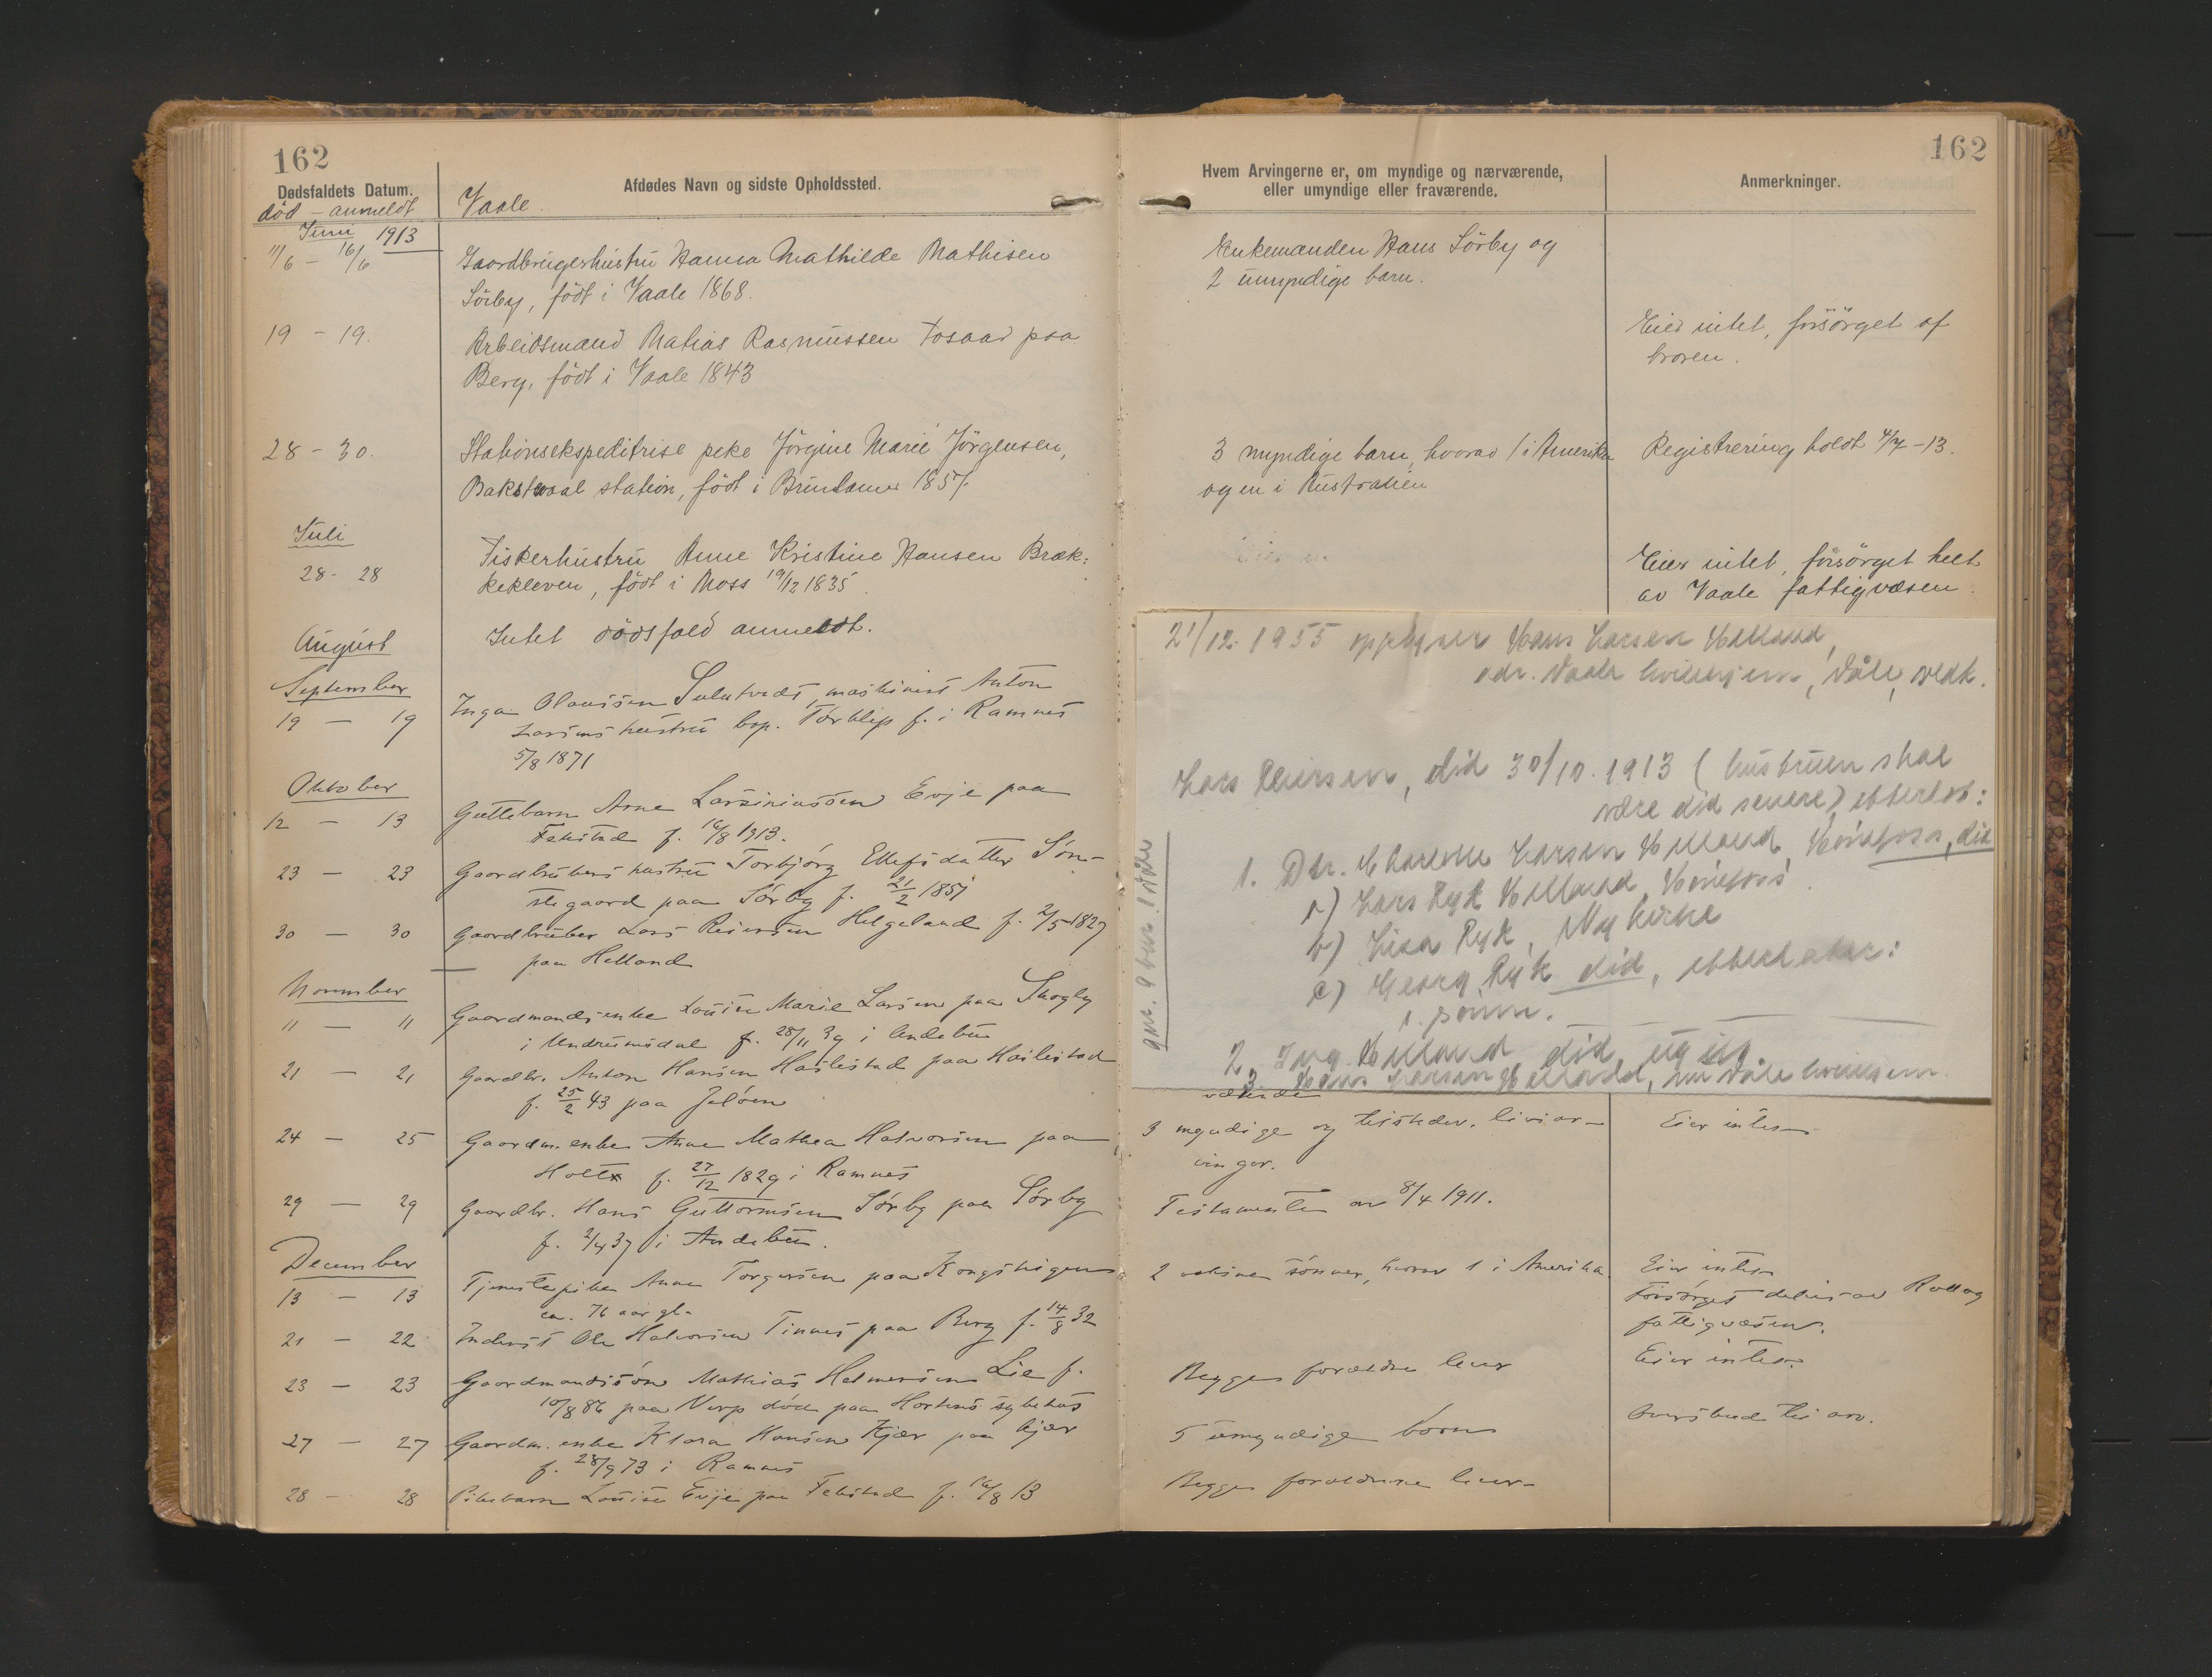 162
Dødsfaldets Datum.
død - anmeldt
Afdødes Navn og sidste Opholdssted.
Vaale.
Juni 1913
11/6 - 16/6
Gaardbrugerhustru Hanna Mathilde Mathisen
Sörby, född i Vaale 1868.
19 - 19.
Arbeidsmand Matias Rasmussen Fosaas paa
Berg, född i Vaale 1843
28 - 30.
Stationsekspeditrise Jörgine Marie Jörgensen,
station, född i 1857.
Juli
28 - 28
Fiskerhustru Anne Kristine Hansen Bræk-
kekleven, född i Moss 19/12 1835
August
Intet dödsfald anmeldt.
September
19 - 19
Inga Olaussen maskinist Anton
Larsens hustru bop. f. i Ramnes
5/8 1871
Oktober
12 - 13
Guttebarn Arne Larsiniussen Evje paa
Fekstad f. 16/8 1913.
23 - 23
Gaardbrukers hustru Torbjörg Ellefsdatter Søn-
stegaard paa Sørby f. 21/2 1851
30 - 30
Gaardbruker Lars Reiersen Helgeland f. 2/5 1827
paa Helland
November
11 - 11
Gaardmandsenke Louise Marie Larsen paa Skogly
i Undrumsdal f. 28/11 39 i Andebu
21 - 21
Gaardbr. Anton Hansen Haslestad paa Haslestad
f. 25/2 43 paa Jeløen
24 - 25
Gaardm. enke Anne Mathea Halvorsen paa
Holt f. 27/12 1829 i Ramnes
29 - 29
Gaardbr. Hans Guttormsen Sørby paa Sørby
f. 2/4 37 i Andebu.
December
13 - 13
Tjenestepike Anne Torgersen paa Kongshögen
ca. 76 aar gl.
21 - 22
Inderst Ole Halvorsen Tinnes paa Berg f. 14/8 32
23 - 23
Gaardmandssön Mathias Helmersen Lie f.
10/8 86 paa Verp död paa Hortens sykehus
27 - 27
Gaardm. enke Klara Hansen Kjær paa Kjær
f. 28/9 73 i Ramnes
28 - 28
Pikebarn Louise Evje paa Fekstad f. 16/8 13
162
Hvem Arvingerne er, om myndige og nærværende,
eller umyndige eller fraværende.
Anmerkninger.
Enkemanden Hans Sörby og
2 umyndige barn.
Eier intet, forsörget af
broren.
3 myndige barn, hvorav 1 i Amerika
og en i Australien
Registrering holdt 4/7-13.
Eier intet, forsörget helt
av Vaale fattigvæsen.
21/12-1955 opplyser Hans Larsen Helland,
adr. Vaale hvilehjem, Våle, Vestf.
Lars Reiersen, död 30/10.1913 (hustruen skal
være död senere) efterlot:
1. Dtr. Larsen Helland, Hönefoss, död
a) Lars Ryk Helland, Hönefoss
b) Ryk, Nykirke
c) Georg Ryk död, etterlater:
1 sönn.
2. Helland död, ugift
3. Hans Larsen Helland, nu Våle hvilehjem.
gnr. 9 bnr. 1 Våle
3 myndige og tilstedev. livsar-
vinger.
Eier intet
Testamente av 8/4 1911.
2 voksne sönner, hvorav 1 i Amerika.
Eier intet
Forsörget delvis av Rollag
fattigvæsen.
Eier intet
Begges forældre lever
Aversbud til arv.
5 umyndige börn
Begge forældrene lever